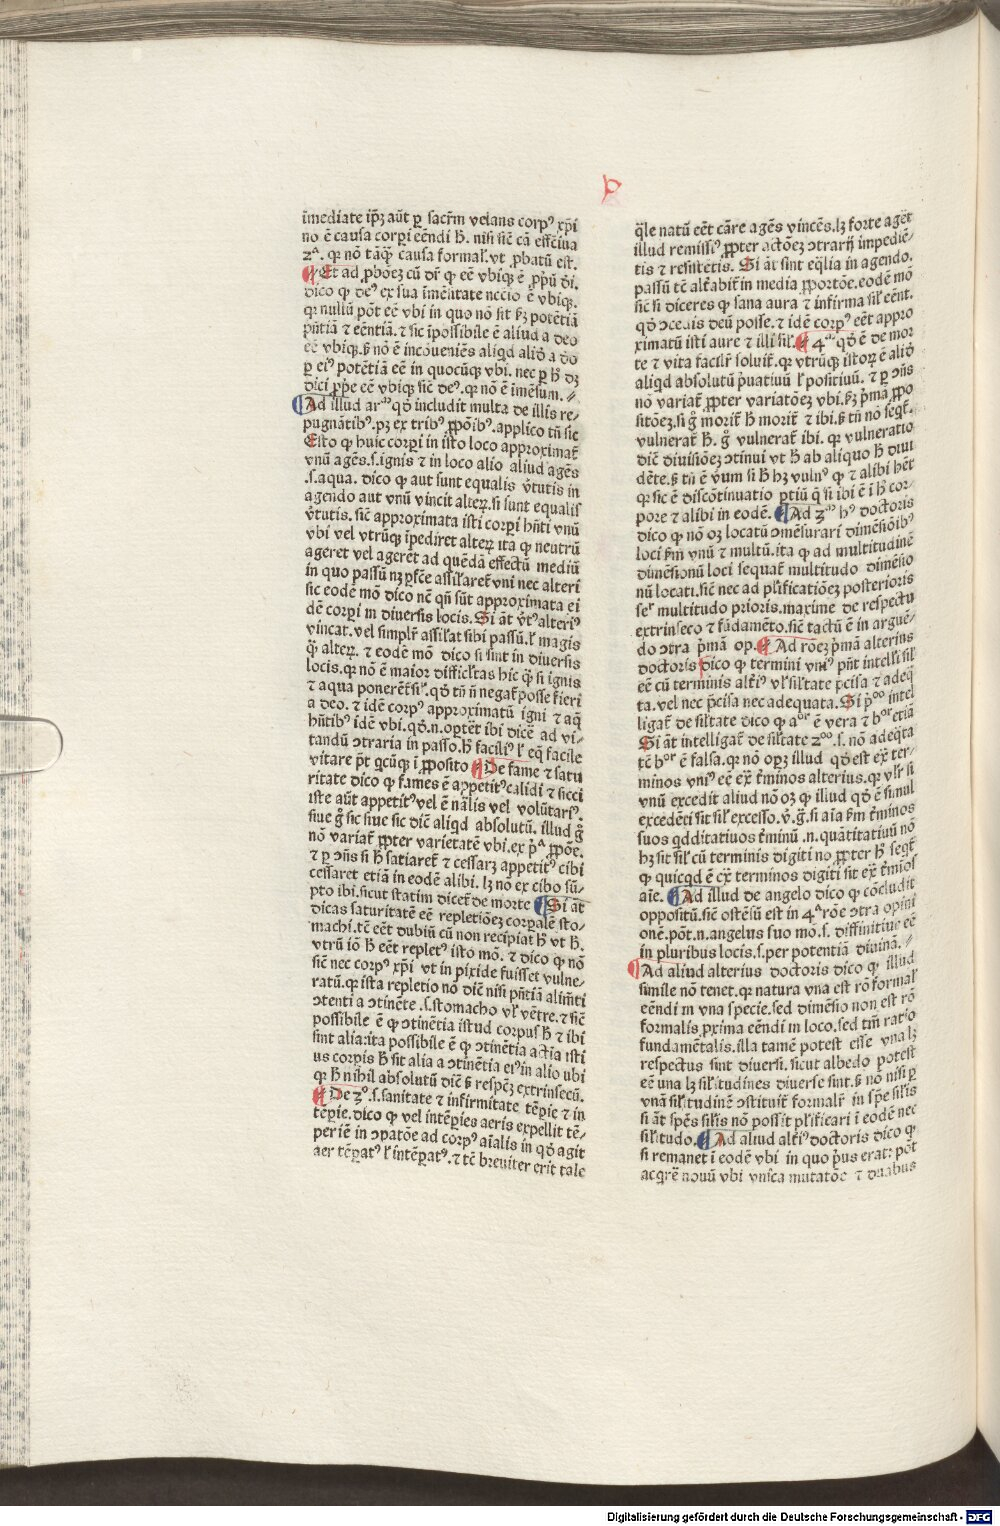 p
īmediate ip̄ꝫ aūt ꝑ sacr̄m velans corpꝰ xp̄i
no ē causa corpꝰi eēndi ħ. nisi sic̄ cā effc̄iua
2ᵃ. qꝛ nō tāqꝫ causa formal̓. vt ꝓbatū est.
¶ Et ad ꝓbōeꝫ cū dr̄ ꝙ eē vbiqꝫ ē ꝓpꝛiū di.
dico ꝙ deꝰ ex sua īmēsitate necc̄io ē vbiqꝫ.
qꝛ nullū pōt eē vbi in quo nō sit ẜꝫ potētiā
pn̄tiā ⁊ eēntiā. ⁊ sic īpossibile ē aliud a deo
eē vbiqꝫ. ẜ nō ē incōueniēs aliqd aliō a dō
ꝑ eiꝰ potētiā eē in quocūqꝫ vbi. nec ꝑ ħ dꝫ
dici ꝓpꝛie eē vbiqꝫ sic̄ deꝰ. qꝛ nō ē īmēsum.
¶ Ad illud arᵐ qō includit multa de illis re⸗
pugnātibꝰ. pꝫ ex tribꝰ ꝓpōibꝰ. applico tn̄ sic
Esto ꝙ huic corpi in isto loco approximat̄
vnū agēs .s. ignis ⁊ in loco alio aliud agēs
.s. aqua. dico ꝙ aut sunt equalis v̓tutis in
agendo aut vnū vincit alteꝝ. si sunt equalis
v̓tutis. sic̄ approximata isti corpi hn̄ti vnū
vbi vel vtrūqꝫ īpediret alteꝝ ita ꝙ neutrū
ageret vel ageret ad quēdā effectū mediū
in quo passū nꝫ ꝑfc̄e assil̓aret̄ vni nec alteri
sic eodē mō dico nē qn̄ sūt approximata ei
dē corpi in diuersis locis. Si āt v̓tꝰ alteriꝰ
vincat. vel simplr̄ assil̓at sibi passū. l̓ magis
q̄ꝫ alteꝝ. ⁊ eodē mō dico si sint in diuersis
locis. qꝛ nō ē maior difficl̓tas hic qꝫ si ignis
⁊ aqua ponerēt̄ sil̓. qō tn̄ n̄ negat̄ posse fieri
a deo. ⁊ idē corpꝰ approximatū igni ⁊ aq̄
hn̄tibꝰ idē vbi. qō .n. oꝑtēt ibi dicē ad vi⸗
tandū ↄtraria in passo. ħ faciliꝰ l̓ eq̄ facile
vitare pt̄ qcūqꝫ ī ꝓposito ¶ De fame ⁊ satu
ritate dico ꝙ fames ē appetitꝰ calidi ⁊ sicci
iste aūt appetitꝰ vel ē nālis vel volūtariꝰ.
siue ḡ sic siue sic dic̄ aliqd absolutū. illud ḡ
nō variat̄ ꝓpter varietatē vbi. ex pᵃ ꝓpōe.
⁊ ꝑ ↄn̄s si ħ satiaret̄ ⁊ cessarꝫ appetitꝰ cibi
cessaret etiā in eodē alibi. lꝫ nō ex cibo sū⸗
pto ibi. sicut statim dicet̄ de morte ¶ Si āt
dicas saturitatē eē repletiōeꝫ corpalē sto⸗
machi. tē eēt dubiū cū non recipiat ħ vt ħ.
vtrū iō ħ eēt repletꝰ isto mō. ⁊ dico ꝙ nō
sic̄ nec corpꝰ xp̄i vt in pixide fuisset vulne⸗
ratū. qꝛ ista repletio nō dic̄ nisi pn̄tiā alim̄ti
ↄtenti a ↄtinēte .s. stomacho vl̓ vētre. ⁊ sic̄
possibile ē ꝙ ↄtinētia istud corpus ħ ⁊ ibi
sint alia: ita possibile ē ꝙ ↄtinētia actia isti
us corpis ħ sit alia a ↄtinētia eiꝰ in alio ubi
qꝛ ħ nihil absolutū dic̄ ẜ respc̄ꝫ extrinsecū.
¶ De 2º .s. sanitate ⁊ infirmitate tēꝑie ⁊ in
tēꝑie. dico ꝙ vel intēꝑies aeris expellit tē⸗
periē in ↄpatōe ad corpꝰ aīalis in qō agit
aer tēꝑatꝰ l̓ intēꝑatꝰ. ⁊ tē breuiter erit tale
q̄le natū eēt cāre agēs vincēs. lꝫ forte agēt
illud remissiꝰ ꝓpter actōeꝫ ↄtrarij impediē⸗
tis ⁊ resistētis. Si āt sint eq̄lia in agendo.
passū tē alt̓abit̄ in media ꝓportōe. eodē mō
sic̄ si diceres ꝙ sana aura ⁊ infirma sil̓ eēnt.
qō ↄcedis deū posse. ⁊ idē corpꝰ eēt appro
ximatū isti aure ⁊ illi sil̓. ¶ 4ᵐ qō ē de mor
te ⁊ vita facilr̄ soluit̄. qꝛ vtrūqꝫ istoꝝ ē aliō
aliqd absolutū pͥuatiuū l̓ positiuū. ⁊ ꝑ ↄn̄s
nō variat̄ ꝓpter variatōeꝫ vbi. ẜꝫ pͥmā ꝓpo
sitōeꝫ. si ḡ morit̄ ħ morit̄ ⁊ ibi. ẜ tn̄ nō seqt̄.
vulnerat̄ ħ. ḡ vulnerat̄ ibi. qꝛ vulneratio
dic̄ diuisiōeꝫ ↄtinui vt ħ ab aliquo ħ diui
dēte. ẜ tn̄ ē v̓um si ħ hꝫ vulnꝰ ꝙ ⁊ alibi hēt
qꝛ sic ē discōtinuatio ꝑtiū q̄ si ibi ē ī ħ cor⸗
pore ⁊ alibi in eodē. ¶ Ad 2ᵐ hꝰ doctoris
dico ꝙ nō oꝫ locatū ↄmēsurari dimēsiōibꝰ
loci ẜm vnū ⁊ multū. ita ꝙ ad multitudinē
dimēsionū loci sequat̄ multitudo dimēsio
nū locati. sic̄ nec ad pl̓ificatiōeꝫ posterioris
seꝰ multitudo prioris. maxime de respectu
extrinseco ⁊ fūdamēto. sic̄ tactū ē in arguē⸗
do ↄtra pͥmā op. ¶ Ad rōeꝫ pͥmā alterius
doctoris dico ꝙ termini vniꝰ pn̄t intelli sil̓
eē cū terminis alt̓iꝰ vl̓ sil̓tate pͨcisa ⁊ adeq
ta. vel nec pͨcisa nec adequata. Si pͦ intel
ligat̄ de sil̓tate dico ꝙ aᵒʳ ē vera ⁊ bᵒʳ etiā
Si āt intelligat̄ de sil̓tate 2º .s. nō adeq̄ta
tē bᵒʳ ē falsa. qꝛ nō oꝑꝫ illud qō est ex̄ ter⸗
minos vniꝰ eē ex̄ t̓minos alterius. qꝛ vl̓r si
vnū excedit aliud nō oꝫ ꝙ illud qō ē simul
excedēti sit sil̓ excesso. v̓.g̓. si aīa ẜm t̓minos
suos qdditatiuos t̓minū .n. quātitatiuū nō
hꝫ sit sil̓ cū terminis digiti no ꝓpter ħ seqt̄
ꝙ quicqd ē ex̄ terminos digiti sit ex̄ t̓mīos
aīe. ¶ Ad illud de angelo dico ꝙ cōcludit
oppositū. sic̄ ostēsū est in 4ᵃ rōe ↄtra opini
onē. pōt .n. angelus suo mō .s. diffinitiue eē
in pluribus locis .s. per potentiā diuinā.
¶ Ad aliud alterius doctoris dico ꝙ illud
simile nō tenet. qꝛ natura vna est rō formal̓
eēndi in vna specie. sed dimēsio non est rō
formalis ꝓxima eēndi in loco. sed tm̄ ratio
fundamētalis. illa tamē potest esse vna lꝫ
respectus sint diuersi. sicut albedo potest
eē una lꝫ sil̓itudines diuerse sint. ẜ nō nisi ꝑ
vnā sil̓itudinē ↄstituit̄ formalr̄ in spē silis
si āt spēs silis nō possit pl̓ificari ī eodē nec
sil̓itudo. ¶ Ad aliud alt̓iꝰ doctoris dico ꝙ
si remanet ī eodē vbi in quo pͥus erat: pōt
acqrē nouū vbi vnica mutatōe ⁊ duabus
Digitalisierung gefördert durch die Deutsche Forschungsgemeinschaft - DFG